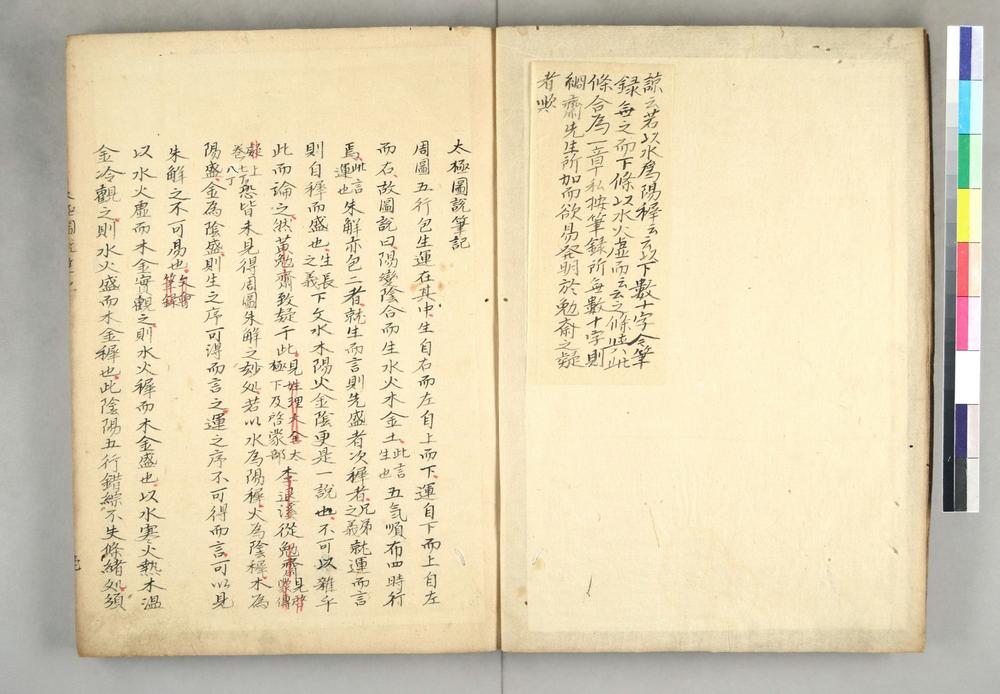 諒云若以水為陽穉云云以下數十字今筆
録無之而下條以水火虚而云云之條與此
條合為一章私按筆録所無數十字則
絅齋先生所加而欲易発明於勉斎之疑
者歟
太極圖説筆記
周圖五行包生運在其中生自右而左自上而下運自下而上自左
而右故圖説曰陽變陰合而生水火木金土此言生也五氣順布四時行
焉此言運也朱解亦包二者就生而言則先盛者次穉者兄弟之義就運而言
則自穉而盛也生長之義下文水木陽火金陰更是一說也不可以雜乎
此而論之然黄勉齋致疑于此見性理大全太極下及啓蒙部李退溪從勉齋見啓蒙傳
疑上卷七八丁恐皆未見得周圖朱解之妙処若以水為陽穉火為陰穉木為
陽盛金為陰盛則生之序可得而言之運之序不可得而言可以見
朱解之不可易也文會筆録
以水火虚而木金實觀之則水火穉而木金盛也以水寒火熱木温
金冷觀之則水火盛而木金穉也此陰陽五行錯綜不失條緒処須